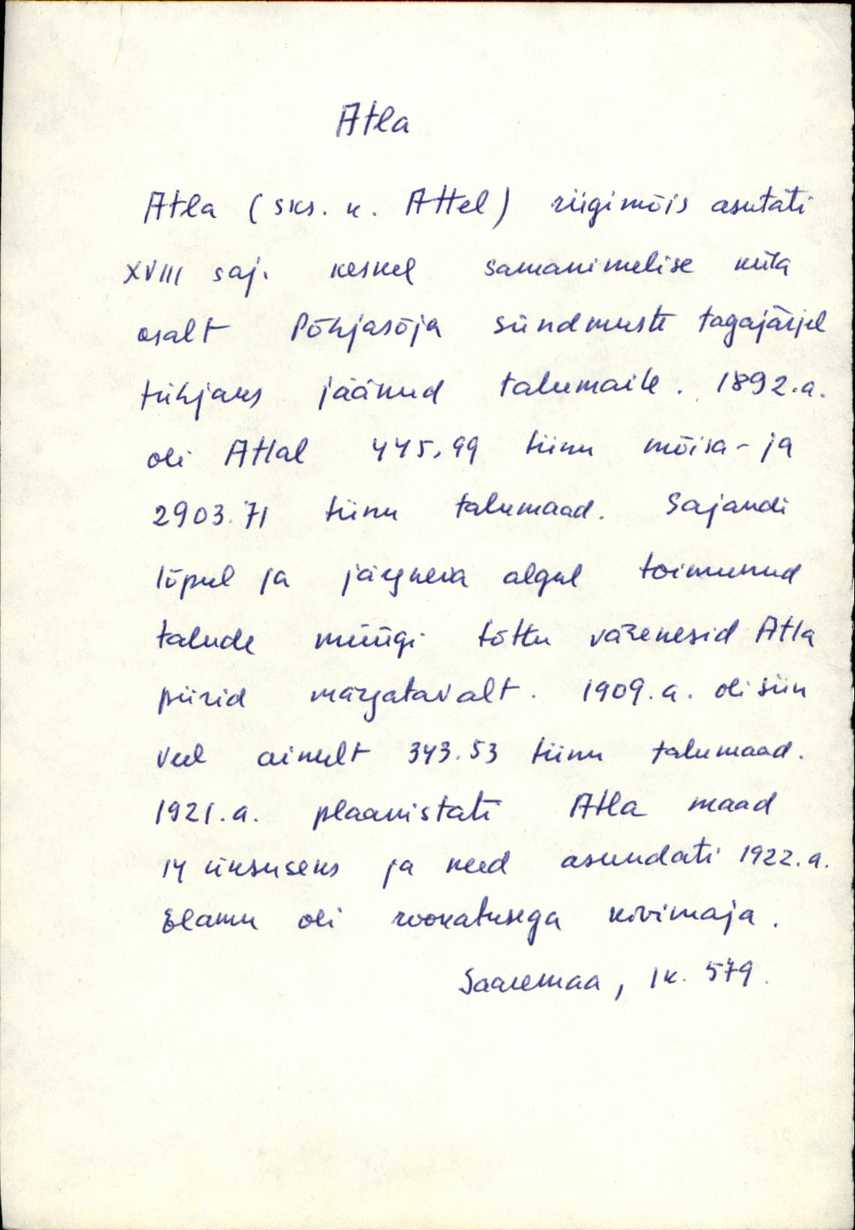 Atla
Atla (sks. k. Attel) riigimõis asutati
XVIII saj. keskel samanimelise küla
osalt Põhjasõja sündmuste tagajärjel
tühjaks jäänud talumaile. 1892.a.
oli Atlal 445,99 tiinu mõisa- ja
2903.71 tiinu talumaad. Sajandi
lõpul ja järgneva algul toimunud
talude müügi tõttu vähenesid Atla
piirid märgatavalt. 1909.a. oli siin
veel ainult 343.53 tiinu talumaad.
1921.a. plaanistati Atla maad
14 üksuseks ja need asundati 1922.a.
Elamu oli rookatusega kivimaja.
Saaremaa, lk. 579.